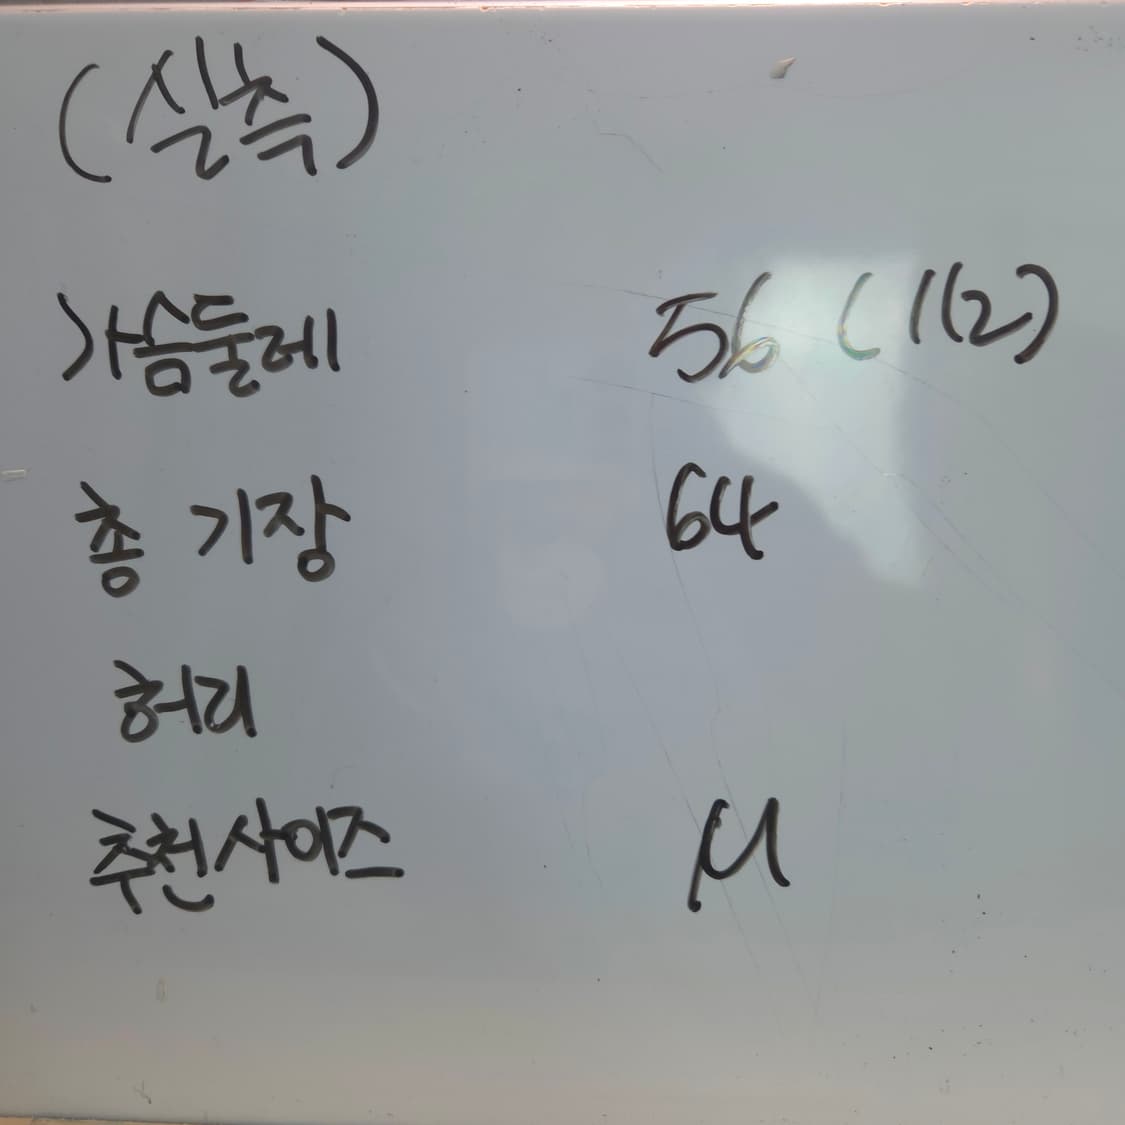 (실측)
가슴둘레 56 (112)
총 기장 64
허리
추천사이즈 M